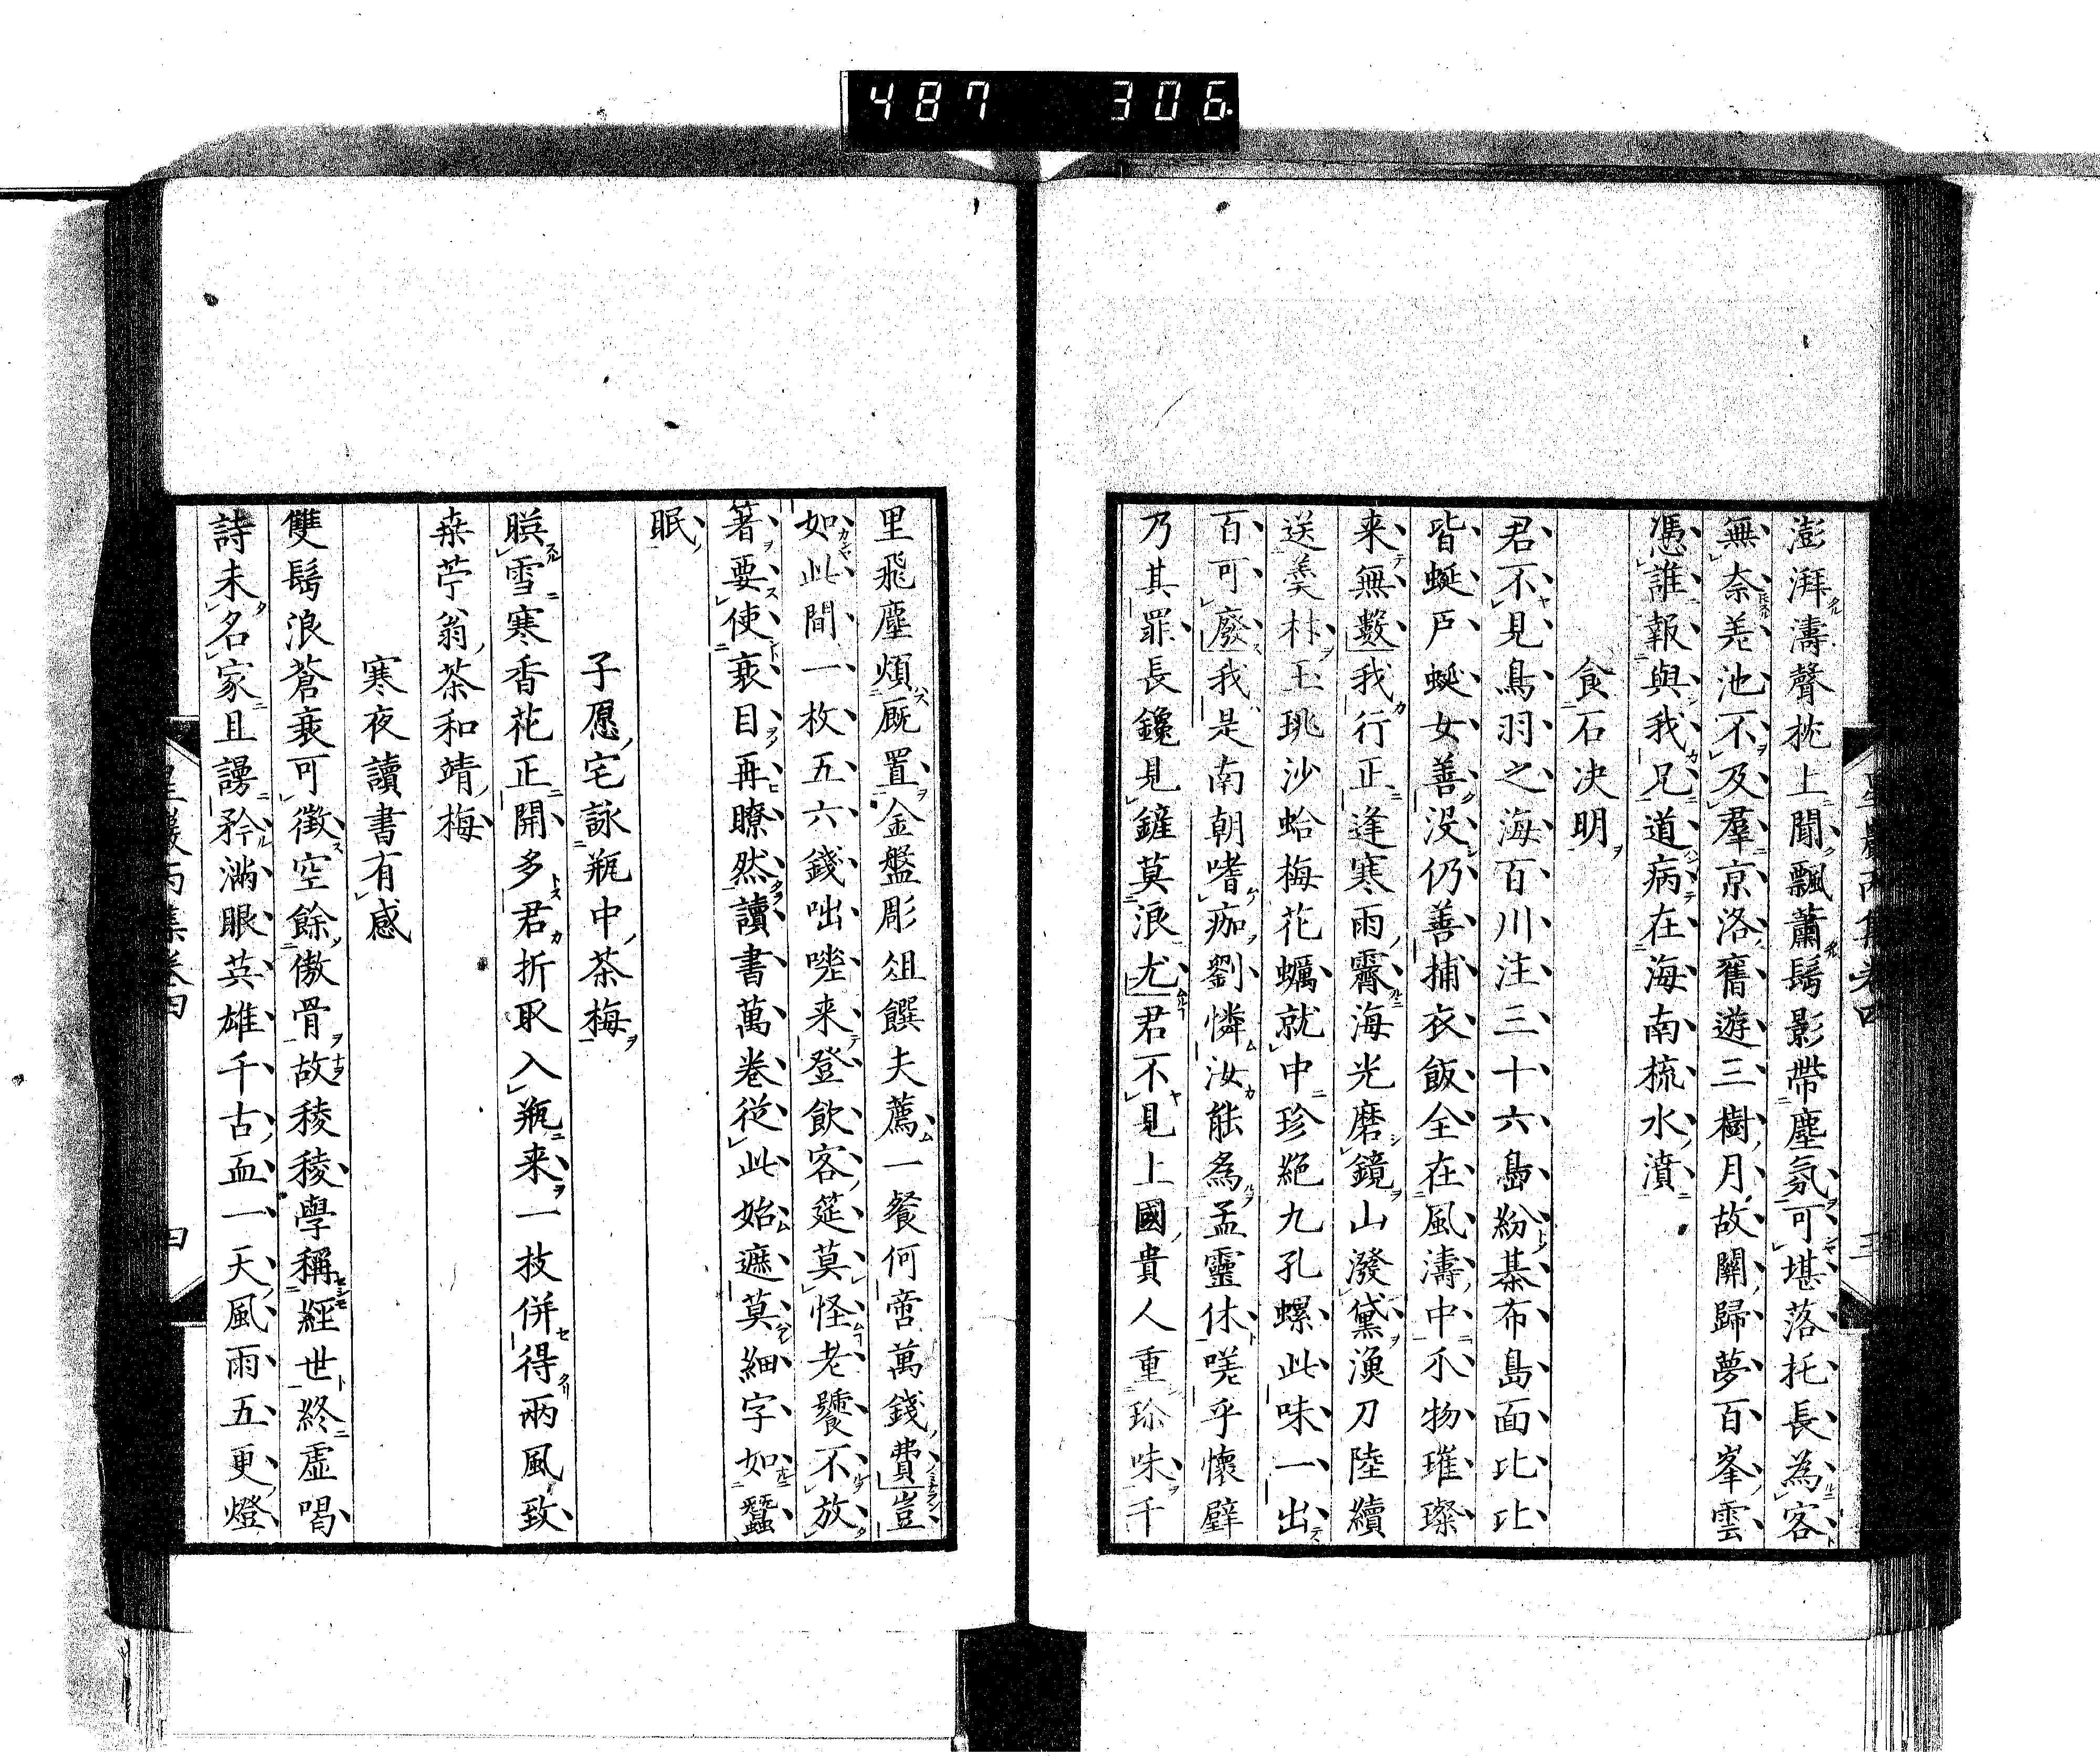 487 306
澎湃濤聲枕上聞飄蕭鬢影帶塵氛可堪落托長為客
無奈差池不及羣京洛舊遊三樹月故關歸夢百峯雲
憑誰報與我兄道病在海南梳水濆
食石决明
君不見鳥羽之海百川注三十六島紛棊布島面比比
皆蜑戸蜑女善没仍善捕衣飯全在風濤中介物璀璨
来無數我行正逢寒雨霽海光磨鏡山潑黛漁刀陸續
送羹材玉珧沙蛤梅花蠣就中珍絶九孔螺此味一出
百可廢我是南朝嗜痂劉憐汝能為孟靈休嗟乎懷璧
乃其罪長鑱見鏟莫浪尤君不見上國貴人重珍味千
里飛塵煩厩置金盤彫俎饌夫薦一餐何啻萬錢費豈
如此間一枚五六錢咄嗟来登飲客筵莫怪老饕不放
箸要使衰目再瞭然讀書萬卷從此始遮莫細字如蠶
眠
子愿宅詠瓶中茶梅
暎雪寒香花正開多君折取入瓶来一枝併得兩風致
桑苧翁茶和靖梅
寒夜讀書有感
雙鬢浪蒼衰可徵空餘傲骨故稜稜學稱經世終虛喝
詩未名家且謾矜滿眼英雄千古血一天風雨五更燈
星巖丙集卷四
三
四